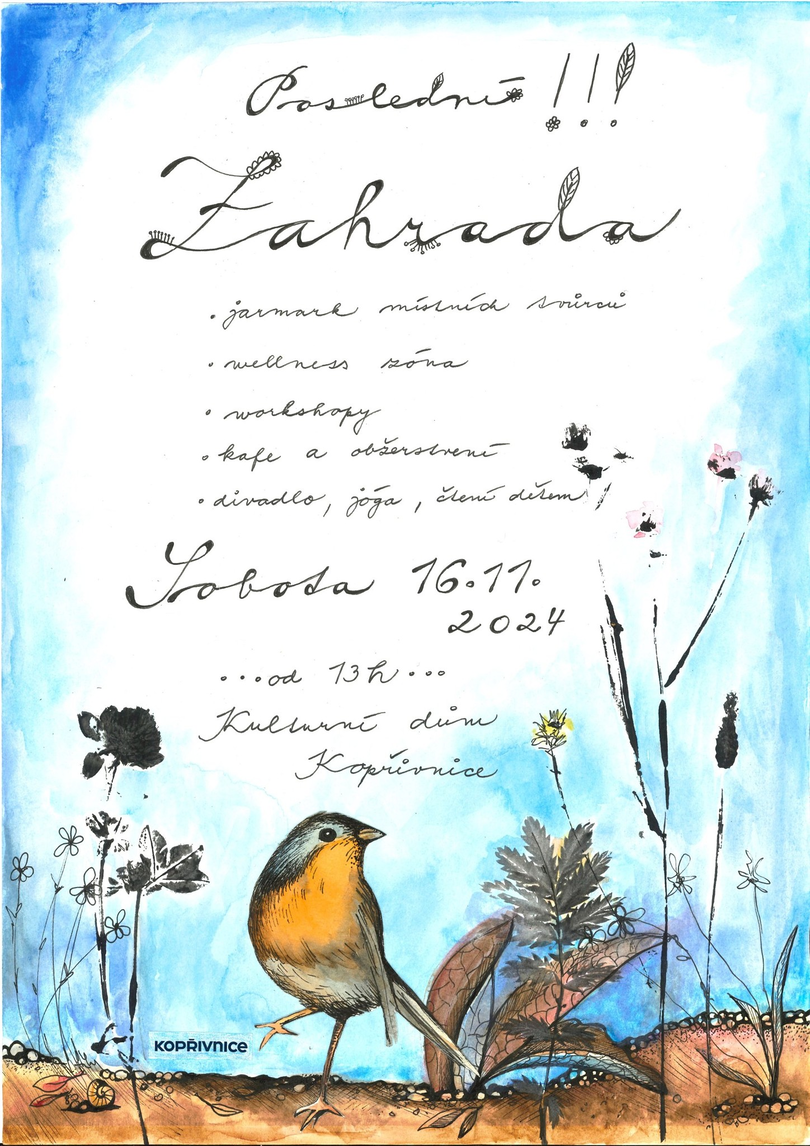 Poslední !!!
Zahrada
• jarmark místních tvůrců
• wellness zóna
• workshopy
• kafe a obžerstvení
• divadlo, jóga, čtení dětem
Sobota 16.11.
2024
...od 13h...
Kulturní dům
Kopřivnice
KOPŘIVNICE